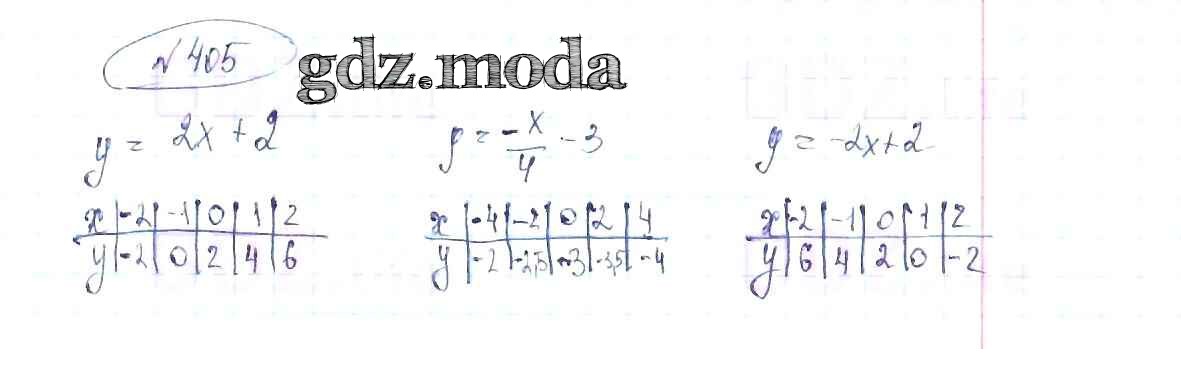 № 405 gdz.moda
y = 2x + 2    y = -x/4 - 3    y = -2x+2
x | -2 | -1 | 0 | 1 | 2    x | -4 | -2 | 0 | 2 | 4    x | -2 | -1 | 0 | 1 | 2
y | -2 | 0 | 2 | 4 | 6    y | -2 | -2,5 | -3 | -3,5 | -4    y | 6 | 4 | 2 | 0 | -2